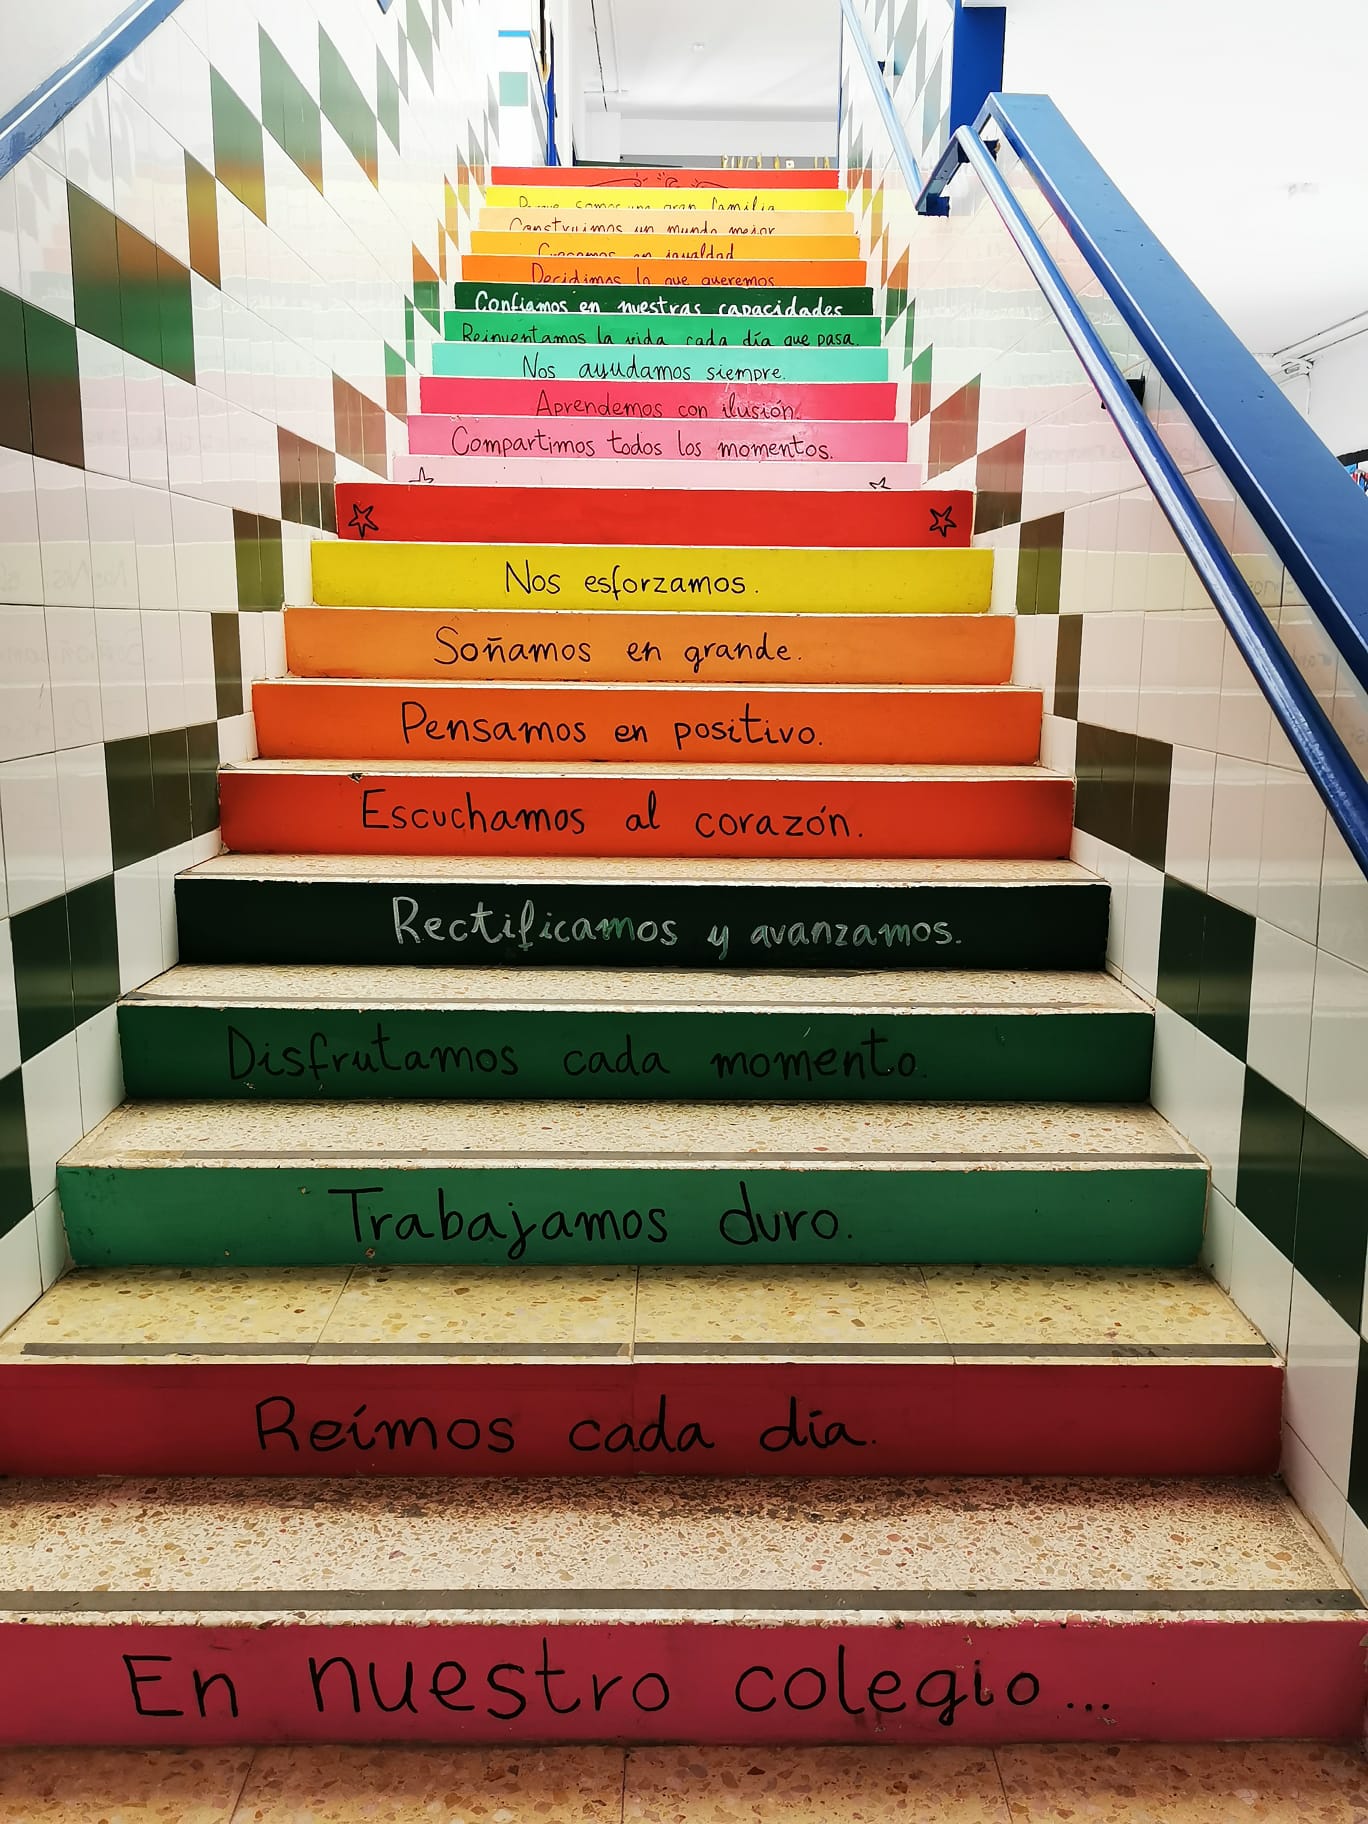 Porque somos una gran familia
Construimos un mundo mejor
Crecemos en igualdad
Decidimos lo que queremos
Confiamos en nuestras capacidades
Reinventamos la vida cada día que pasa.
Nos ayudamos siempre.
Aprendemos con ilusión.
Compartimos todos los momentos.
Nos esforzamos.
Soñamos en grande.
Pensamos en positivo.
Escuchamos al corazón.
Rectificamos y avanzamos.
Disfrutamos cada momento.
Trabajamos duro.
Reímos cada día.
En nuestro colegio...